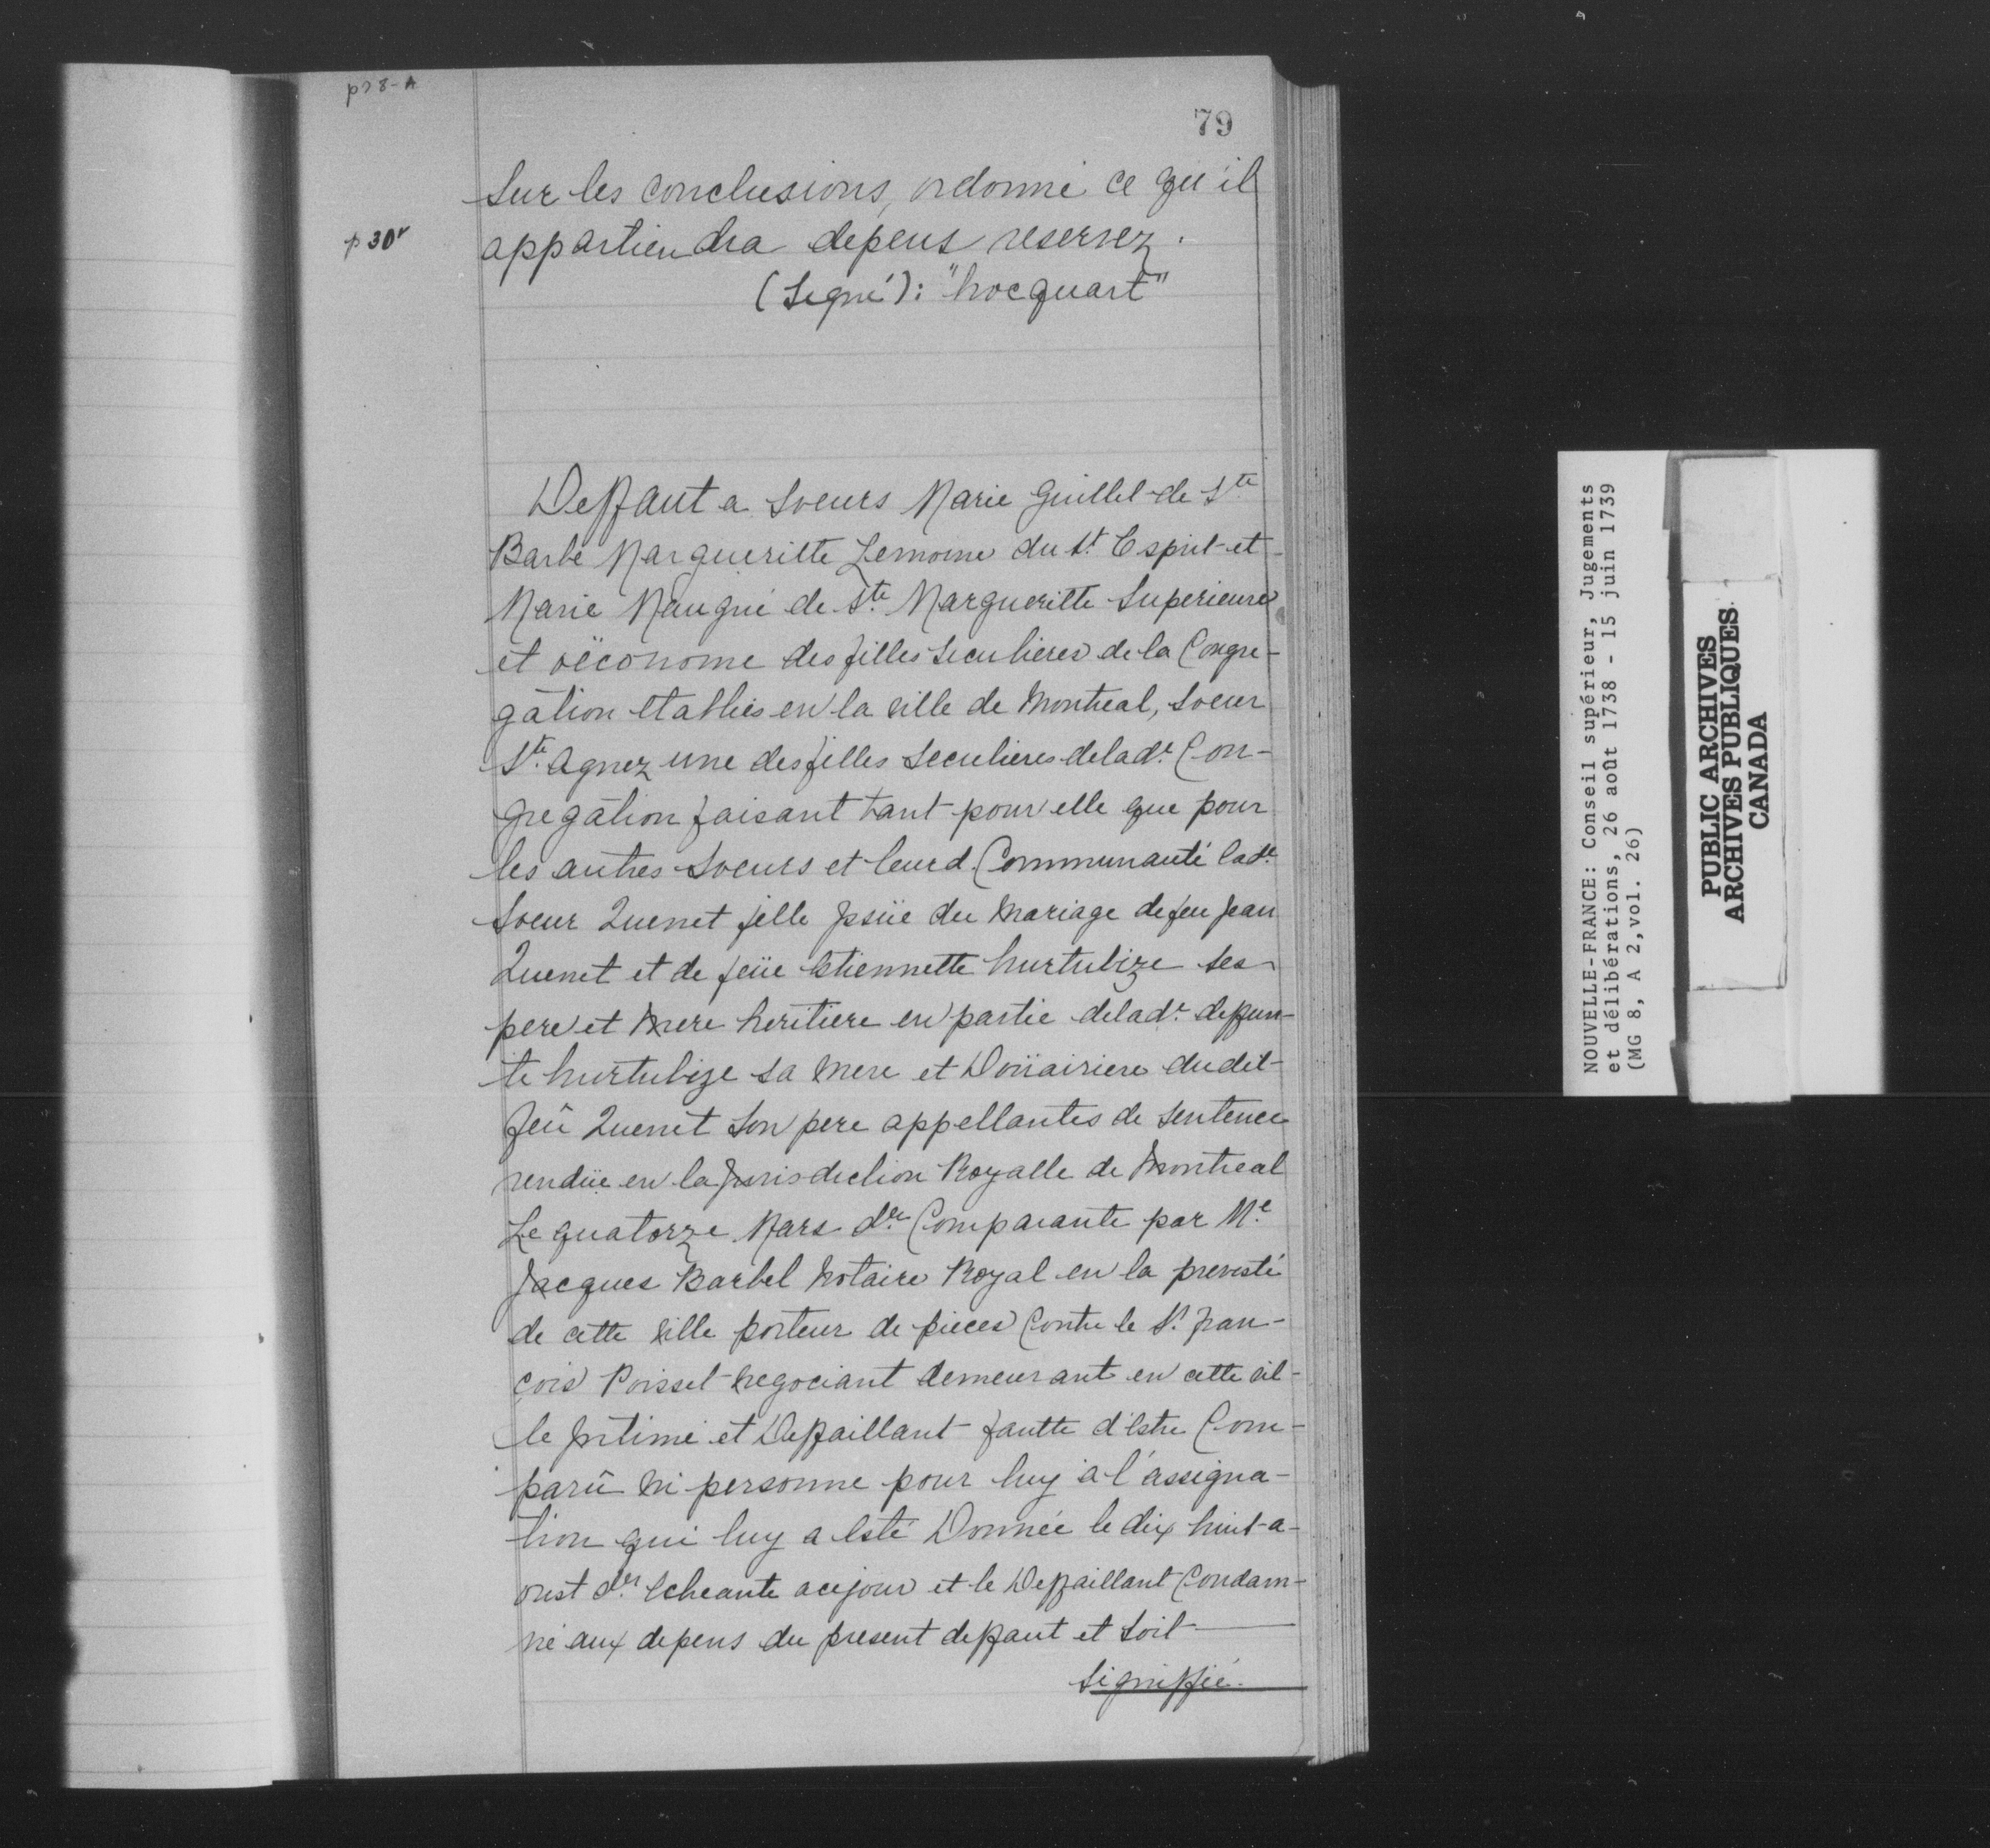 p78-A
79
Sur les conclusions, ordonné ce qu'il
p 30v
appartiendra depens reservez.
(Signé): "hocquart"
Deffaut a Soeurs Marie Guillet de Ste
Barbe Margueritte Lemoine du St Esprit et
Marie Maugué de Ste Margueritte Superieure
et oëconome des filles seculieres de la Congre-
gation establies en la ville de Montreal, Soeur
Ste Agnez une des filles seculieres de lade Con-
gregation faisant tant pour elle que pour
les autres Soeurs et leurd. Communauté lade
Soeur Quenet fille Issüe du Mariage de feu Jean
Quenet et de feüe Etiennette hurtubize ses
pere et Mere heritiere en partie de lade deffun-
te hurtubize sa Mere et Doüairiere dudit
feû Quenet Son pere appellantes de Sentence
rendüe en la Jurisdiction Royalle de Montreal
Le quatorze Mars der Comparante par Me
Jacques Barbel Notaire Royal en la prevosté
de cette ville porteur de pieces Contre le Sr Fran-
çois Poisset Negociant demeurant en cette vil-
le Intimé et Deffaillant fautte d'Estre Com-
parû Ni personne pour luy à l'assigna-
tion qui luy a Esté Donnée le dix huit a-
oust der Echeante ace jour et le Deffaillant Condam-
né aux depens du present deffaut et Soit
Signiffié.
NOUVELLE-FRANCE: Conseil supérieur, Jugements
et délibérations, 26 août 1738 - 15 juin 1739
(MG 8, A 2, vol. 26)
PUBLIC ARCHIVES
ARCHIVES PUBLIQUES
CANADA